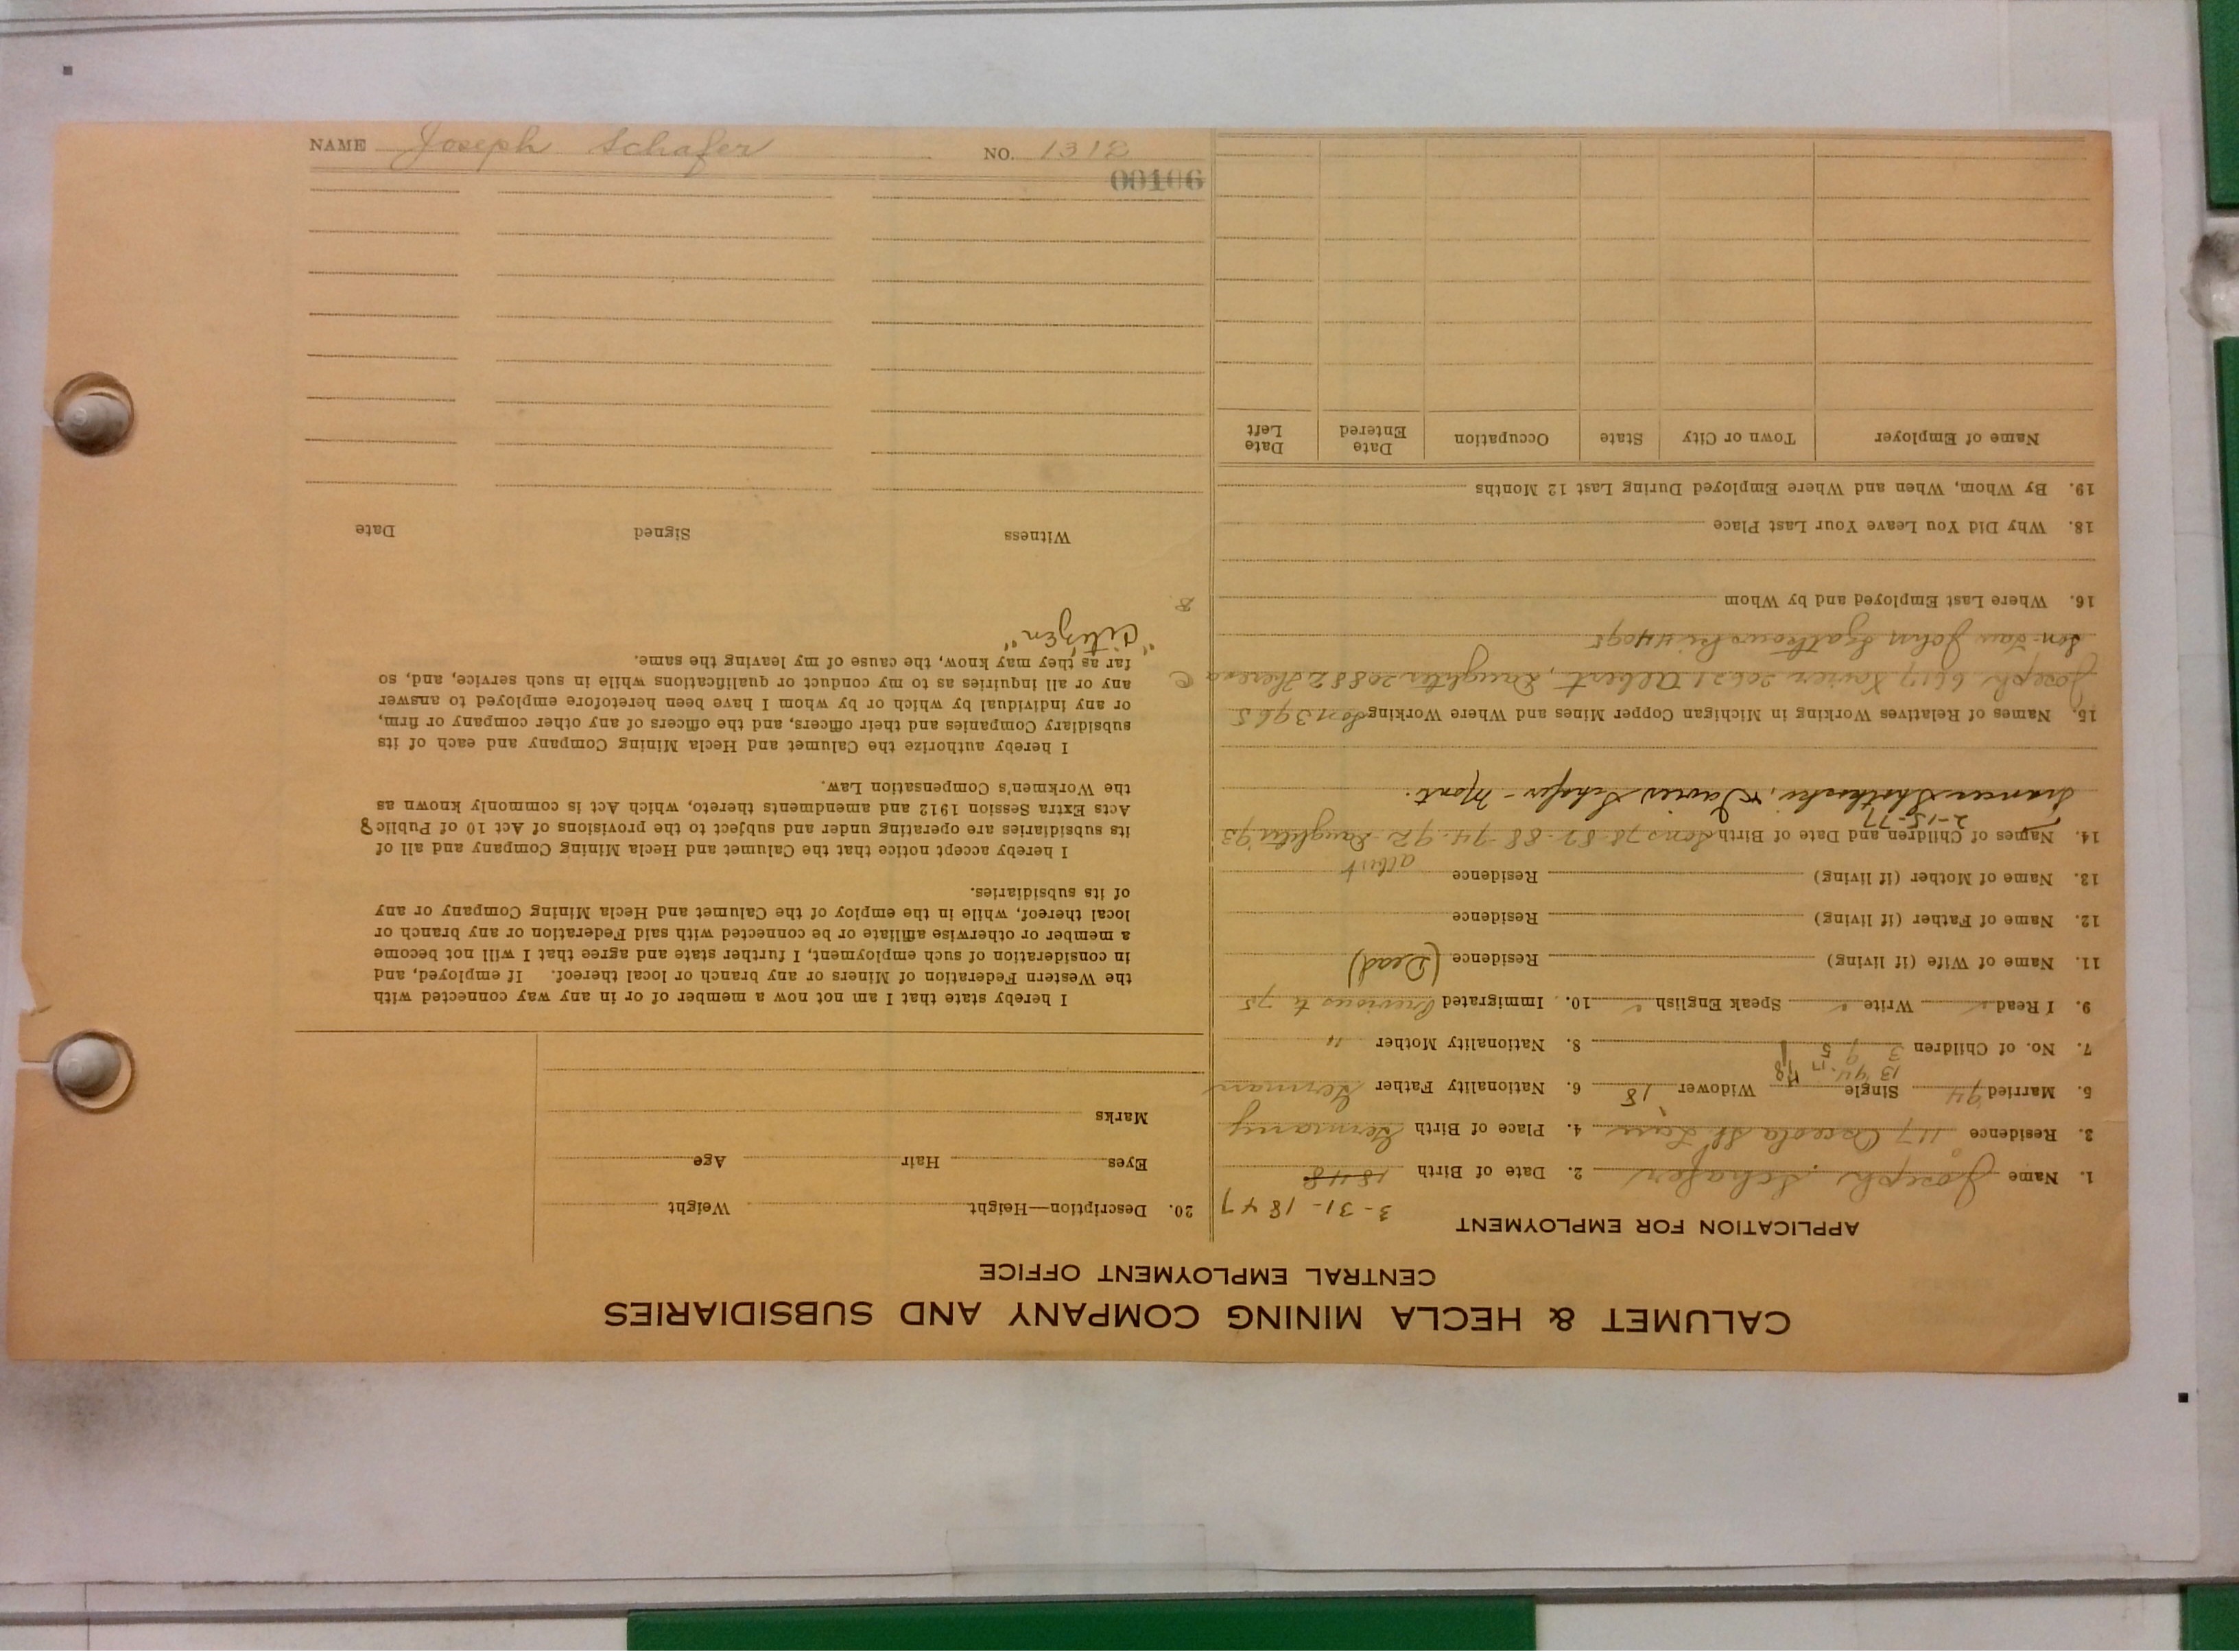 CALUMET & HECLA MINING COMPANY AND SUBSIDIARIES
CENTRAL EMPLOYMENT OFFICE
APPLICATION FOR EMPLOYMENT
3-31-1847
1. Name Joseph Schafer 2. Date of Birth 1848
3. Residence 117 Osceola St Laur 4. Place of Birth Germany
5. Married 94 Single Widower 18 6. Nationality Father German
13 94 17 18
7. No. of Children 3 9 5 8. Nationality Mother "
9. I Read Write Speak English 10. Immigrated Previous to 75
11. Name of Wife (if living) Residence (Dead)
12. Name of Father (if living) Residence
13. Name of Mother (if living) Residence
Albert
14. Names of Children and Date of Birth Sons 78-82-88-94-92 Daughter 93
2-15-77
Frances, Xavier Schafer - Mont.
15. Names of Relatives Working in Michigan Copper Mines and Where Working Son 3965
Joseph 6617 Xavier 20621 Albert, Daughter 20882 Theresa C
Son-Law John 44095
16. Where Last Employed and by Whom
18. Why Did You Leave Your Last Place
19. By Whom, When and Where Employed During Last 12 Months
Name of Employer Town or City State Occupation Date Entered Date Left
20. Description—Height Weight
Eyes Hair Age
Marks
I hereby state that I am not now a member of or in any way connected with
the Western Federation of Miners or any branch or local thereof. If employed, and
in consideration of such employment, I further state and agree that I will not become
a member or otherwise affiliate or be connected with said Federation or any branch or
local thereof, while in the employ of the Calumet and Hecla Mining Company or any
of its subsidiaries.
I hereby accept notice that the Calumet and Hecla Mining Company and all of
its subsidiaries are operating under and subject to the provisions of Act 10 of Public
Acts Extra Session 1912 and amendments thereto, which Act is commonly known as
the Workmen's Compensation Law.
I hereby authorize the Calumet and Hecla Mining Company and each of its
subsidiary Companies and their officers, and the officers of any other company or firm,
or any individual by which or by whom I have been heretofore employed to answer
any or all inquiries as to my conduct or qualifications while in such service, and, so
far as they may know, the cause of my leaving the same.
"Citizen"
8
Witness Signed Date
00106
NAME Joseph Schafer NO. 1312